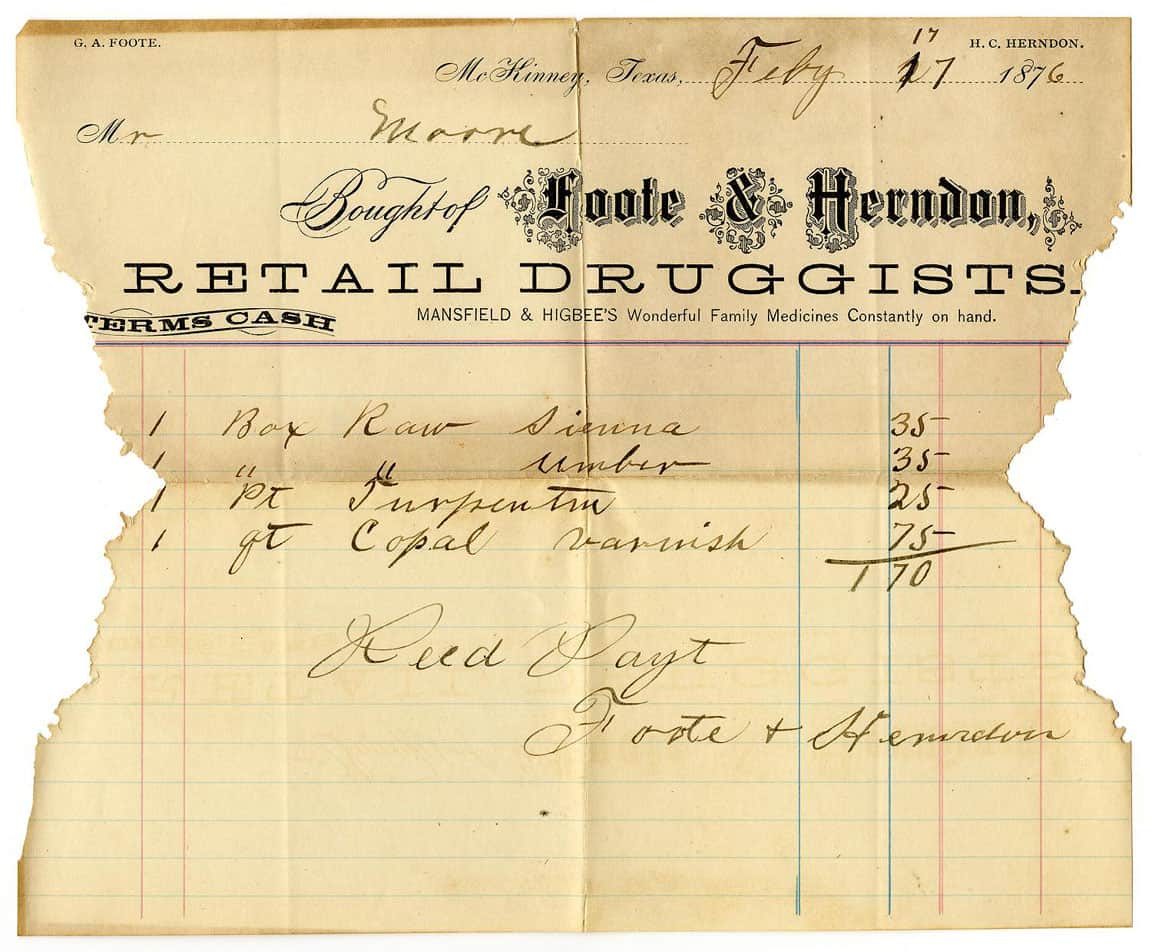 G. A. FOOTE. H. C. HERNDON.
McKinney, Texas, Feby 17 17 1876
Mr Moore
Bought of Foote & Herndon,
RETAIL DRUGGISTS.
TERMS CASH
MANSFIELD & HIGBEE'S Wonderful Family Medicines Constantly on hand.
1 Box Raw Sienna 35
1 " " umber 35
1 Pt Turpentin 25
1 qt Copal varnish 75
1 70
Recd Payt
Foote + Herndon